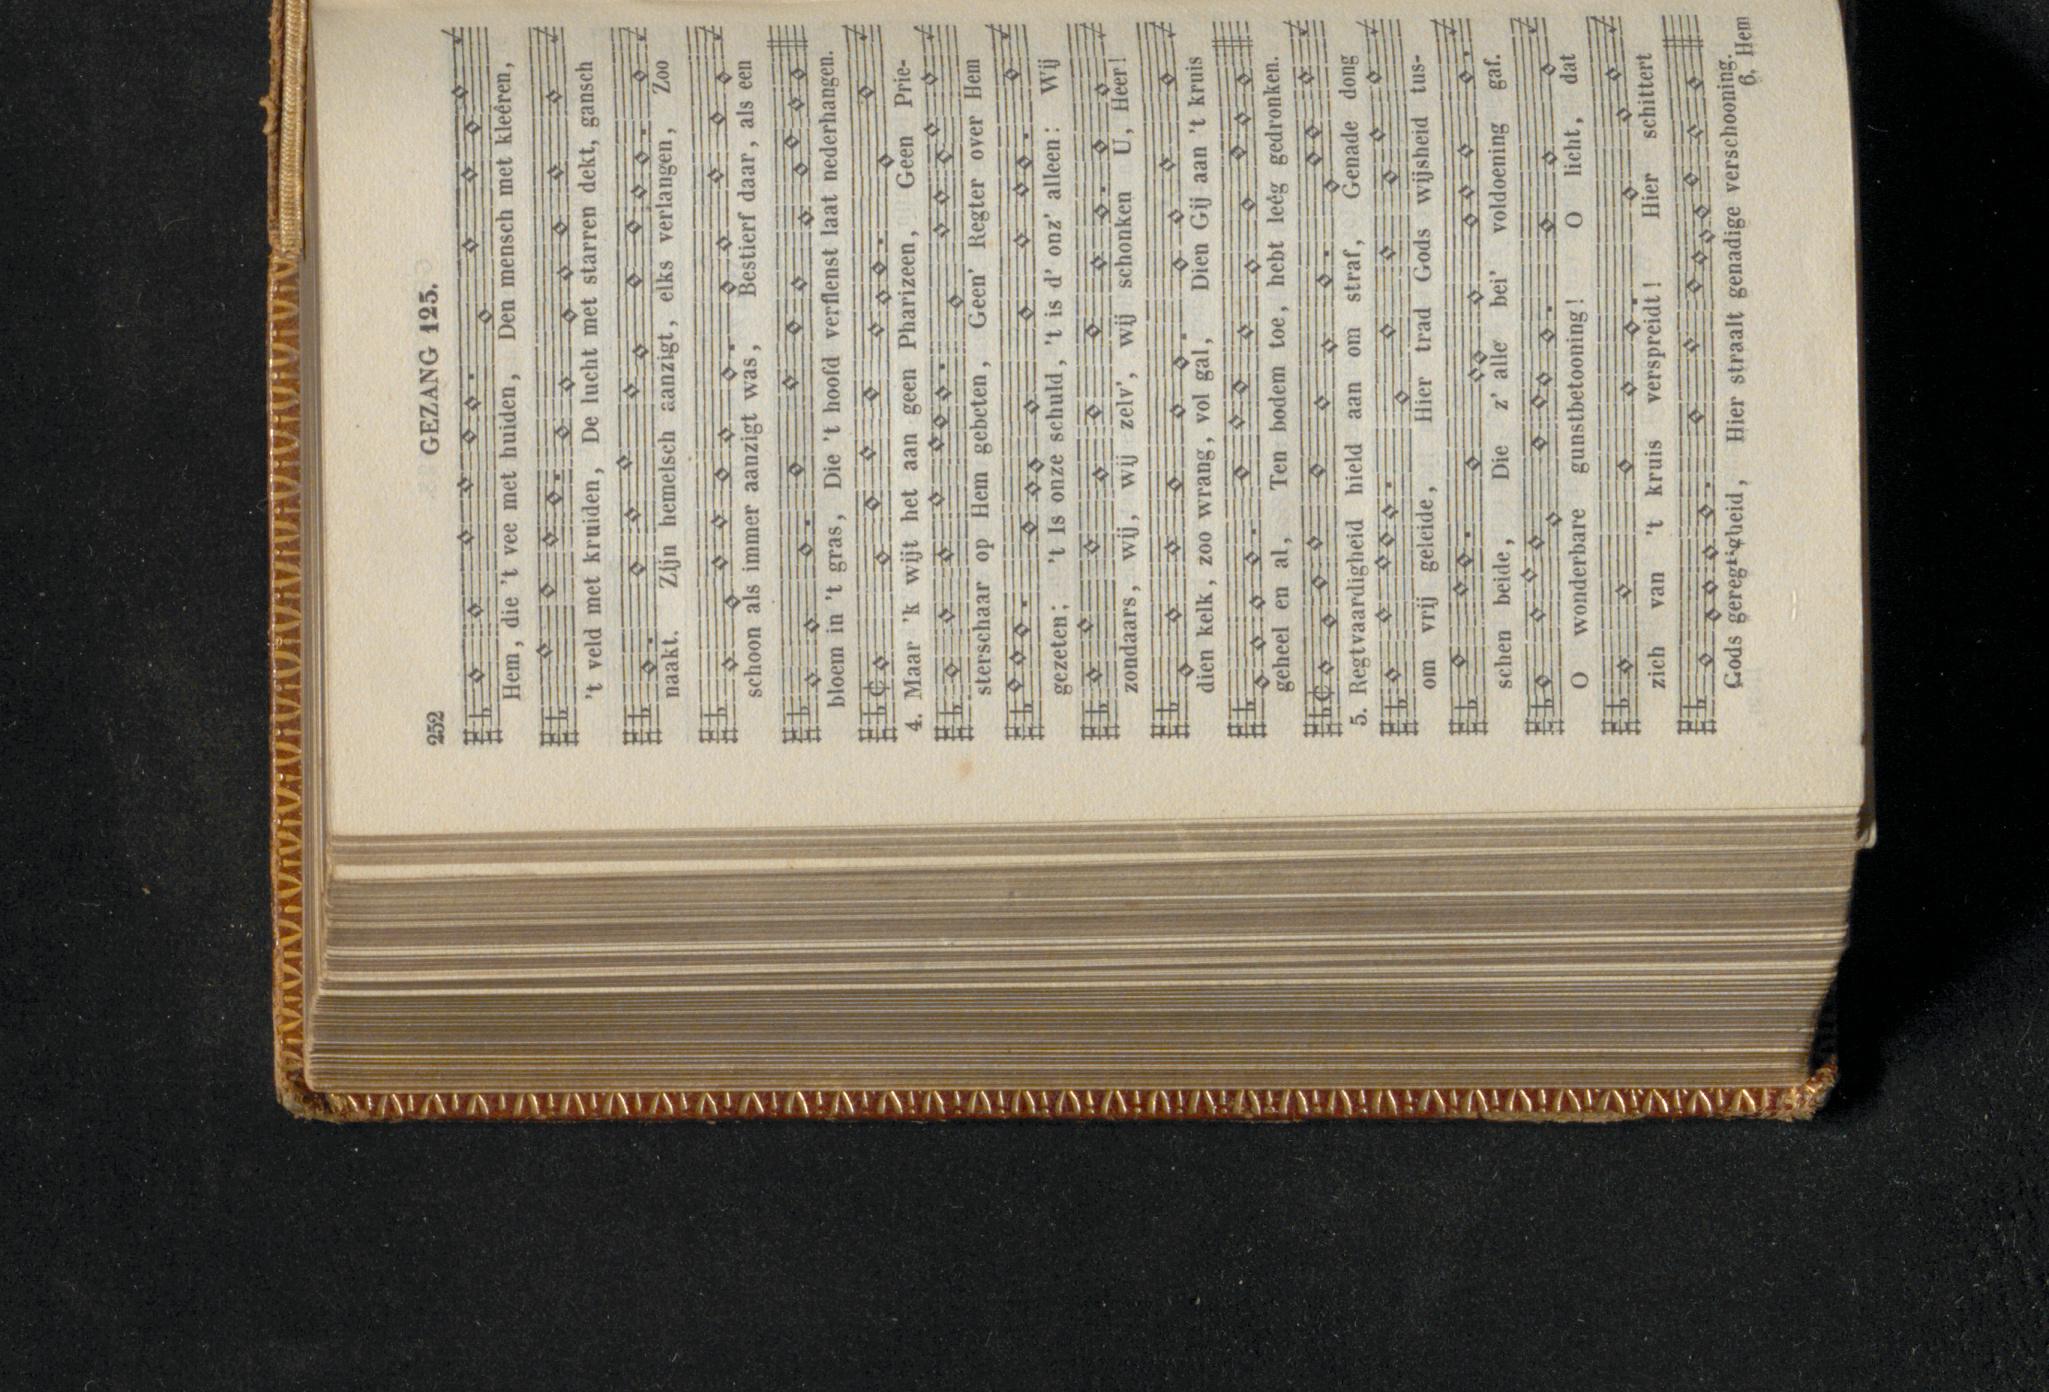 252 GEZANG 125.
Hem, die 't vee met huiden, Den mensch met kleêren,
't veld met kruiden, De lucht met starren dekt, gansch
naakt. Zijn hemelsch aanzigt, elks verlangen, Zoo
schoon als immer aanzigt was, Bestierf daar, als een
bloem in 't gras, Die 't hoofd verflenst laat nederhangen.
4. Maar 'k wijt het aan geen Pharizeen, Geen Prie-
sterschaar op Hem gebeten, Geen' Regter over Hem
gezeten; 't Is onze schuld, 't is d' onz' alleen: Wij
zondaars, wij, wij zelv', wij schonken U, Heer!
dien kelk, zoo wrang, vol gal, Dien Gij aan 't kruis
geheel en al, Ten bodem toe, hebt leêg gedronken.
5. Regtvaardigheid hield aan om straf, Genade dong
om vrij geleide, Hier trad Gods wijsheid tus-
schen beide, Die z' alle bei' voldoening gaf.
O wonderbare gunstbetooning! O licht, dat
zich van 't kruis verspreidt! Hier schittert
Gods geregtigheid, Hier straalt genadige verschooning.
6. Hem